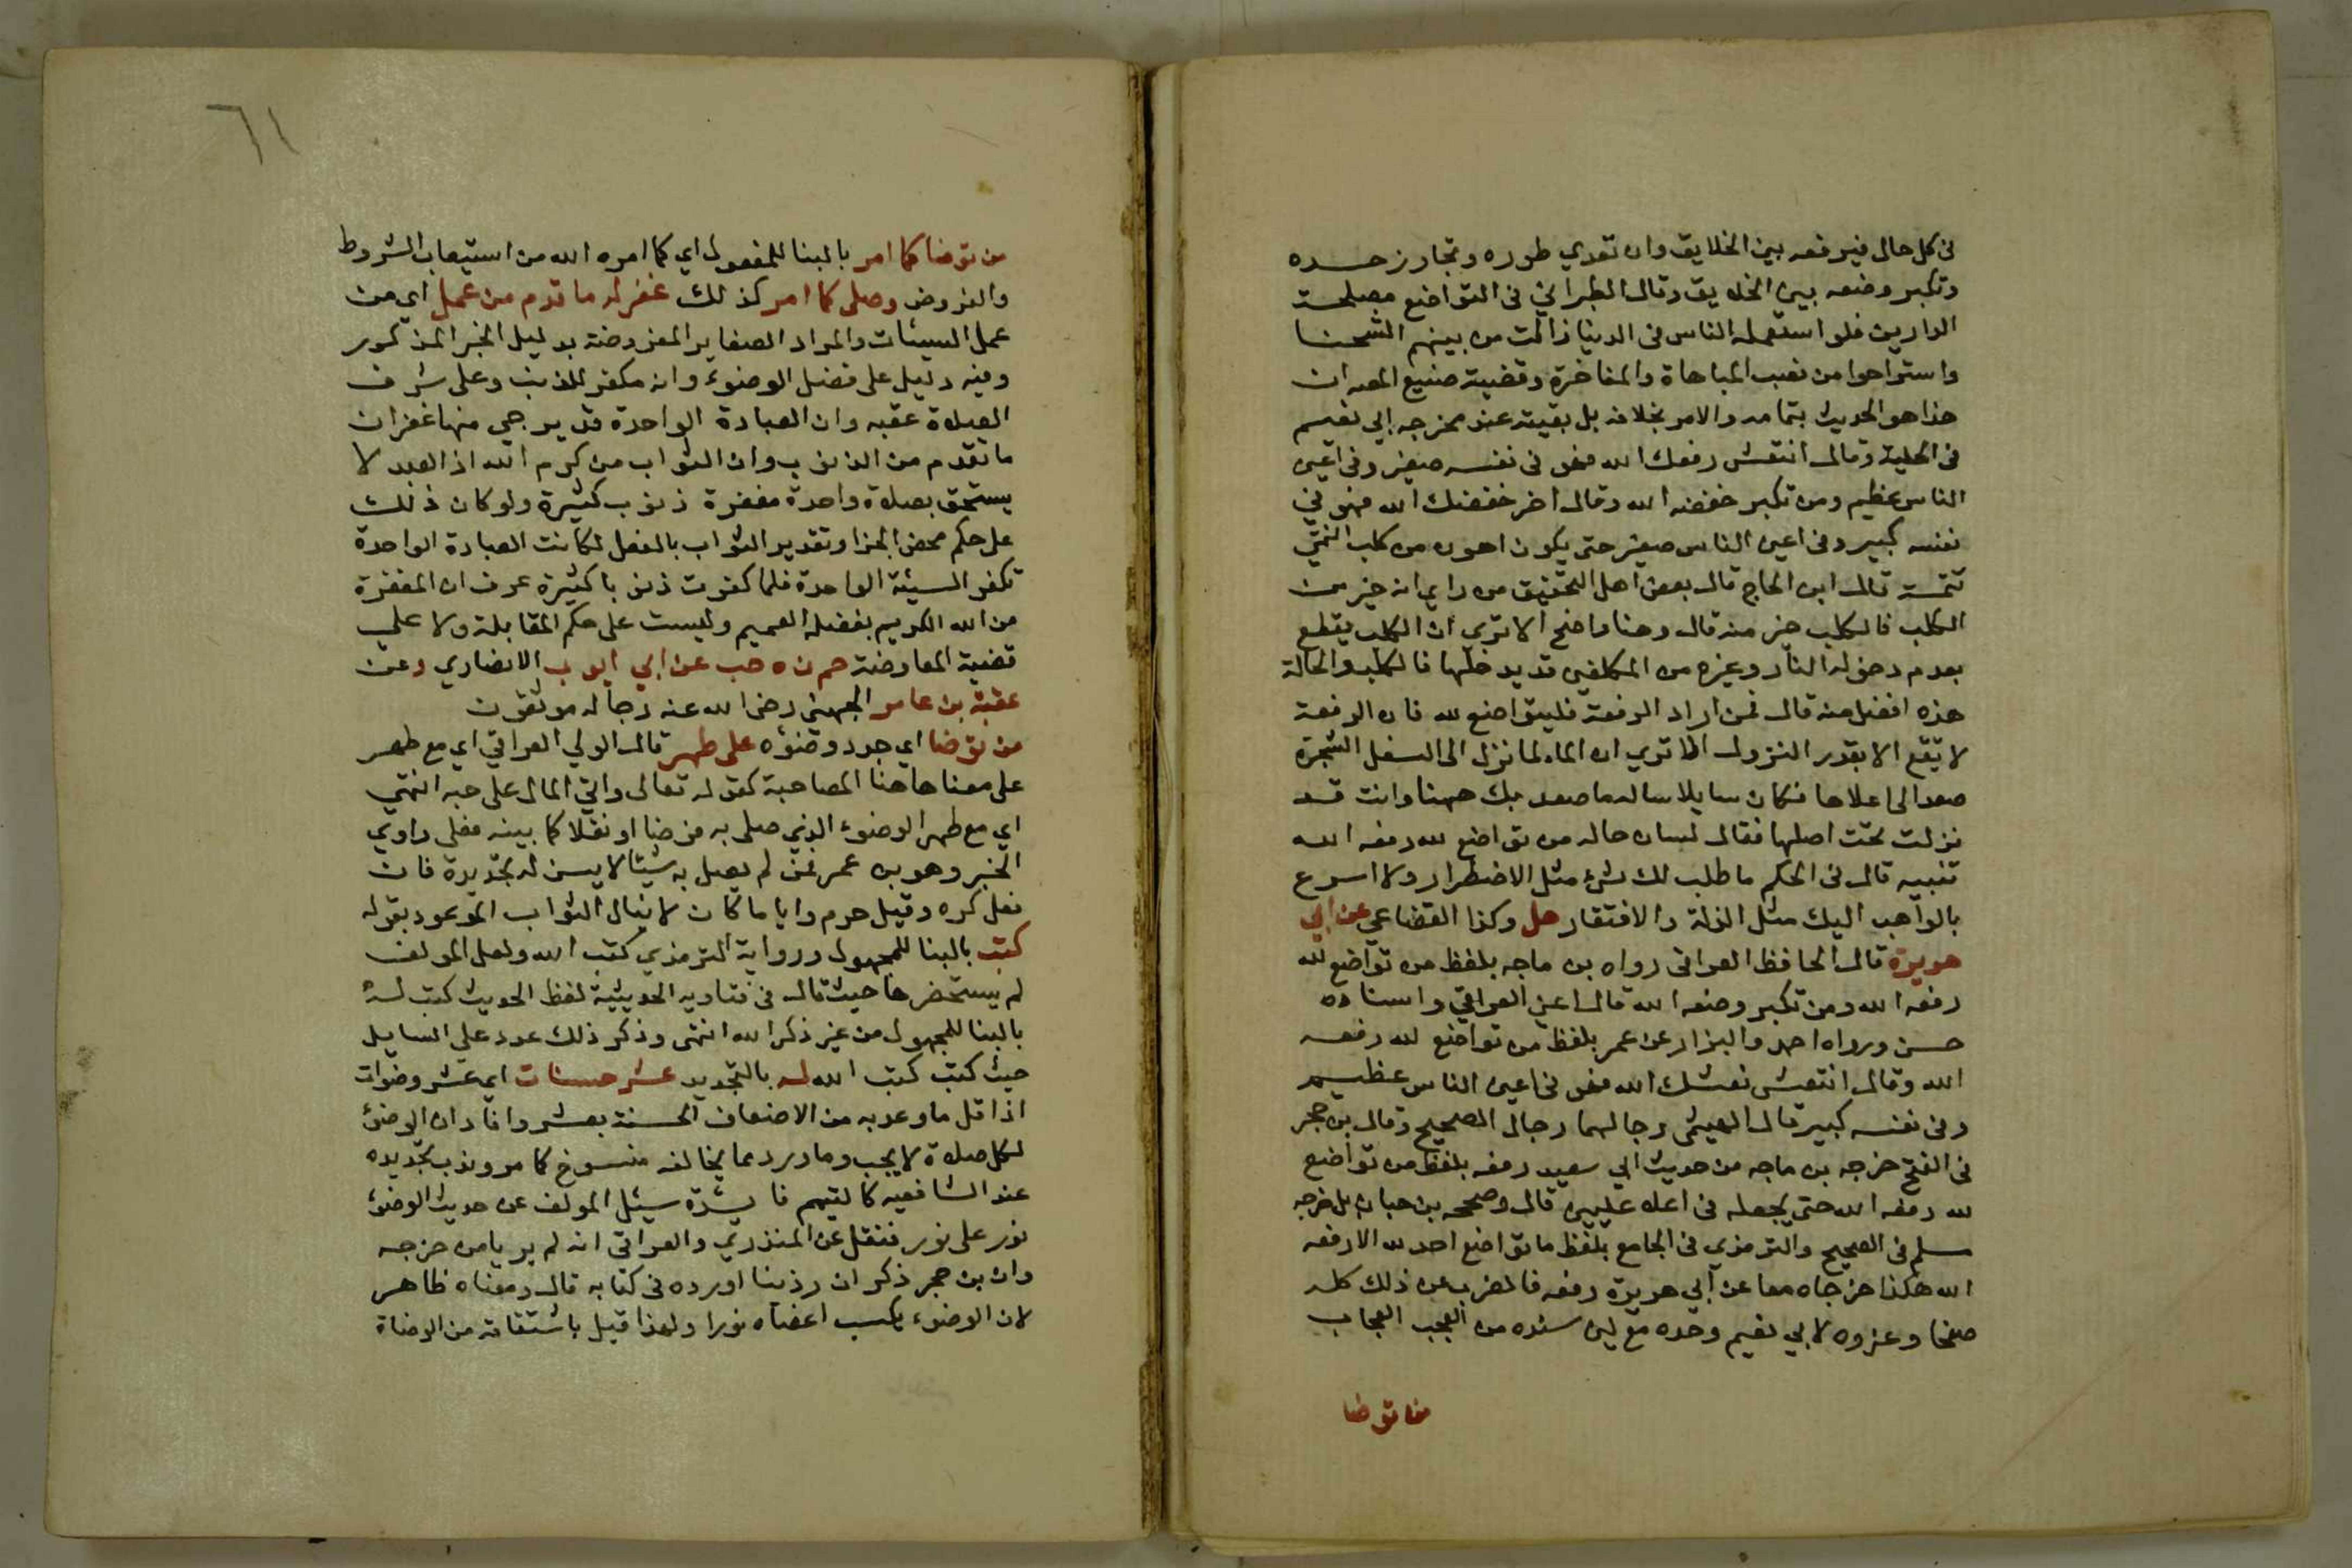 في كل حال فيرفعه بين الخلايق وان تعدي طوره وتجاوز حده
وتكبر وضعه بين الخلايق وقال الطبراني في التواضع مصلحة
الدارين فلو استعمله الناس في الدنيا زالت من بينهم الشحنا
واستراحوا من تعب المباهاة والمفاخرة وقضية صنيع المصه ان
هذا هو الحديث بتمامه والامر بخلافه بل بقيته عند مخرجه ابي نعيم
في الحلية وقال انتعش رفعك الله فهو في نفسه صغير وفي اعين
الناس عظيم ومن تكبر خفضه الله وقال اخر خفضك الله فهو في
نفسه كبير وفي اعين الناس صغير حتى يكون اهون من كلب انتهي
تتمة قال ابن الحاج قال بعض اهل التحقيق من راي انه خير من
الكلب فالكلب خير منه قال وهنا واضح الا تري ان الكلب يقطع
بعدم دخوله النار وغيره من المكلفين قد يدخلها فالكلب والحالة
هذه افضل منه قال فمن اراد الرفعة فليتواضع لله فان الرفعة
لا تقع الا بقدر النزول الا تري ان الماء لما نزل الى اسفل الشجرة
صعد الى اعلاها فكان سايلا ساله ما صعد بك ههنا وانت قد
نزلت تحت اصلها فقال لسان حاله من تواضع لله رفعه الله
تنبيه قال في الحكم ما طلب لك شئ مثل الاضطرار ولا اسرع
بالواهب اليك مثل الذلة والافتقار حل وكذا القضاعي عن ابي
هريرة قال الحافظ العراقي رواه بن ماجه بلفظ من تواضع لله
رفعه الله ومن تكبر وضعه الله قال اعني العراقي واسناده
حسن ورواه احمد والبزار عن عمر بلفظ من تواضع لله رفعه
الله وقال انتعش نعشك الله فهو في اعين الناس عظيم
وفي نفسه كبير قال الهيثمي رجالهما رجال الصحيح وقال بن حجر
في الفتح خرجه بن ماجه من حديث ابي سعيد رفعه بلفظ من تواضع
لله رفعه الله حتى يجعله في اعلا عليين قال وصححه بن حبان بل خرجه
مسلم في الصحيح والترمذي في الجامع بلفظ ما تواضع احد لله الا رفعه
الله هكذا خرجاه معا عن ابي هريرة رفعه فالضرب عن ذلك كله
صفحا وعزوه لابي نعيم وحده مع لين سنده من العجب العجاب
من توضا
٦١
من توضا كما امر بالبنا للمفعول اي كما امره الله من استيعاب الشروط
والفروض وصلى كما امر كذلك غفر له ما قدم من عمل اي من
عمل السيئات والمراد الصغاير المفروضة بدليل الخبر المذكور
وفيه دليل على فضل الوضوء وانه مكفر للذنب وعلى شرف
الصلاة عقبه وان العبادة الواحدة قد يرجي منها غفران
ما تقدم من الذنوب وان الثواب من كرم الله اذ العبد لا
يستحق بصلاة واحدة مغفرة ذنوب كثيرة ولو كان ذلك
على حكم محض الجزا وتقدير الثواب بالفعل لكانت العبادة الواحدة
تكفر السيئة الواحدة فلما كفرت ذنوبا كثيرة عرف ان المغفرة
من الله الكريم بفضله العميم وليست على حكم المقابلة ولا علي
قضية المعاوضة حم ن ه حب عن ابي ايوب الانصاري وعن
عقبة بن عامر الجهني رضي الله عنه رجاله موثقون
من توضا اي جدد وضوءه على طهر قال الولي العراقي اي مع طهر
على معنا ها هنا المصاحبة كقوله تعالى واتي المال على حبه انتهي
اي مع طهر الوضوء الذي صلى به فرضا او نفلا كما بينه فعلى راوي
الخبر وهو بن عمر فمن لم يصل به شيئا لا يسن له تجديده فان
فعل كره وقيل حرم وايا ما كان لا ينال الثواب الموعود بقوله
كتب بالبنا للمجهول ورواية الترمذي كتب الله ولعل المولف
لم يستحضرها حيث قال في فتاويه الحديثية لفظ الحديث كتب له
بالبنا للمجهول من غير ذكر الله انتهى وذكر ذلك عدد على السايل
حيث كتب كتب الله له بالتجديد عشر حسنات اي عشر وضوات
اذ اقل ما وعد به من الاضعاف الحسنة بعشر وافاد ان الوضوء
لكل صلاة لا يجب وما ورد مما يخالفه منسوخ كما مر وندب تجديده
عند الشافعيه كالتيمم فايدة سيئل المولف عن حديث الوضوء
نور على نور فنقل عن المنذري والعراقي انه لم يريا من خرجه
وان بن حجر ذكر ان رذينا اورده في كتابه قال ومعناه ظاهر
لان الوضوء يكسب اعضاه نورا ولهذا قيل باشتقاقه من الوضاة